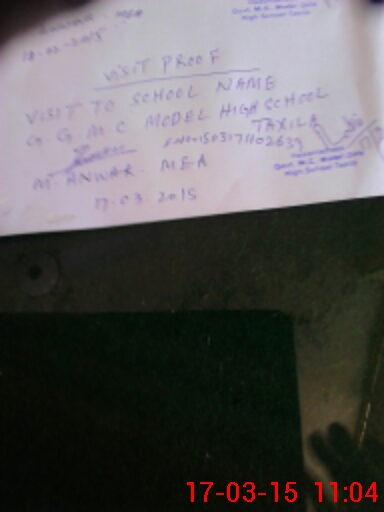 ANWAR. MEA
Govt. M.C. Model Girls
High School Taxila
17-03-2015
VISIT PROOF
VISIT TO SCHOOL NAME
G. G. M C MODEL HIGH SCHOOL
TAXILA
M. ANWAR. MEA
Govt. M.C. Model Girls
High School Taxila
17.03.2015
17-03-15 11:04